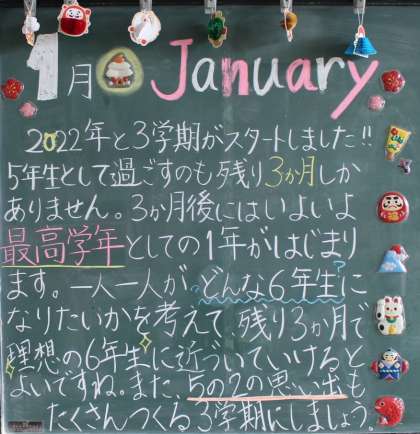 1月 January
2022年と3学期がスタートしました!!
5年生として過ごすのも残り3か月しか
ありません。3か月後にはいよいよ
最高学年としての1年がはじまり
ます。一人一人がどんな6年生?に
なりたいかを考えて、残り3か月で
理想の6年生に近づいていけると
よいですね。また、5の2の思い出も
たくさんつくる3学期にしましょう。